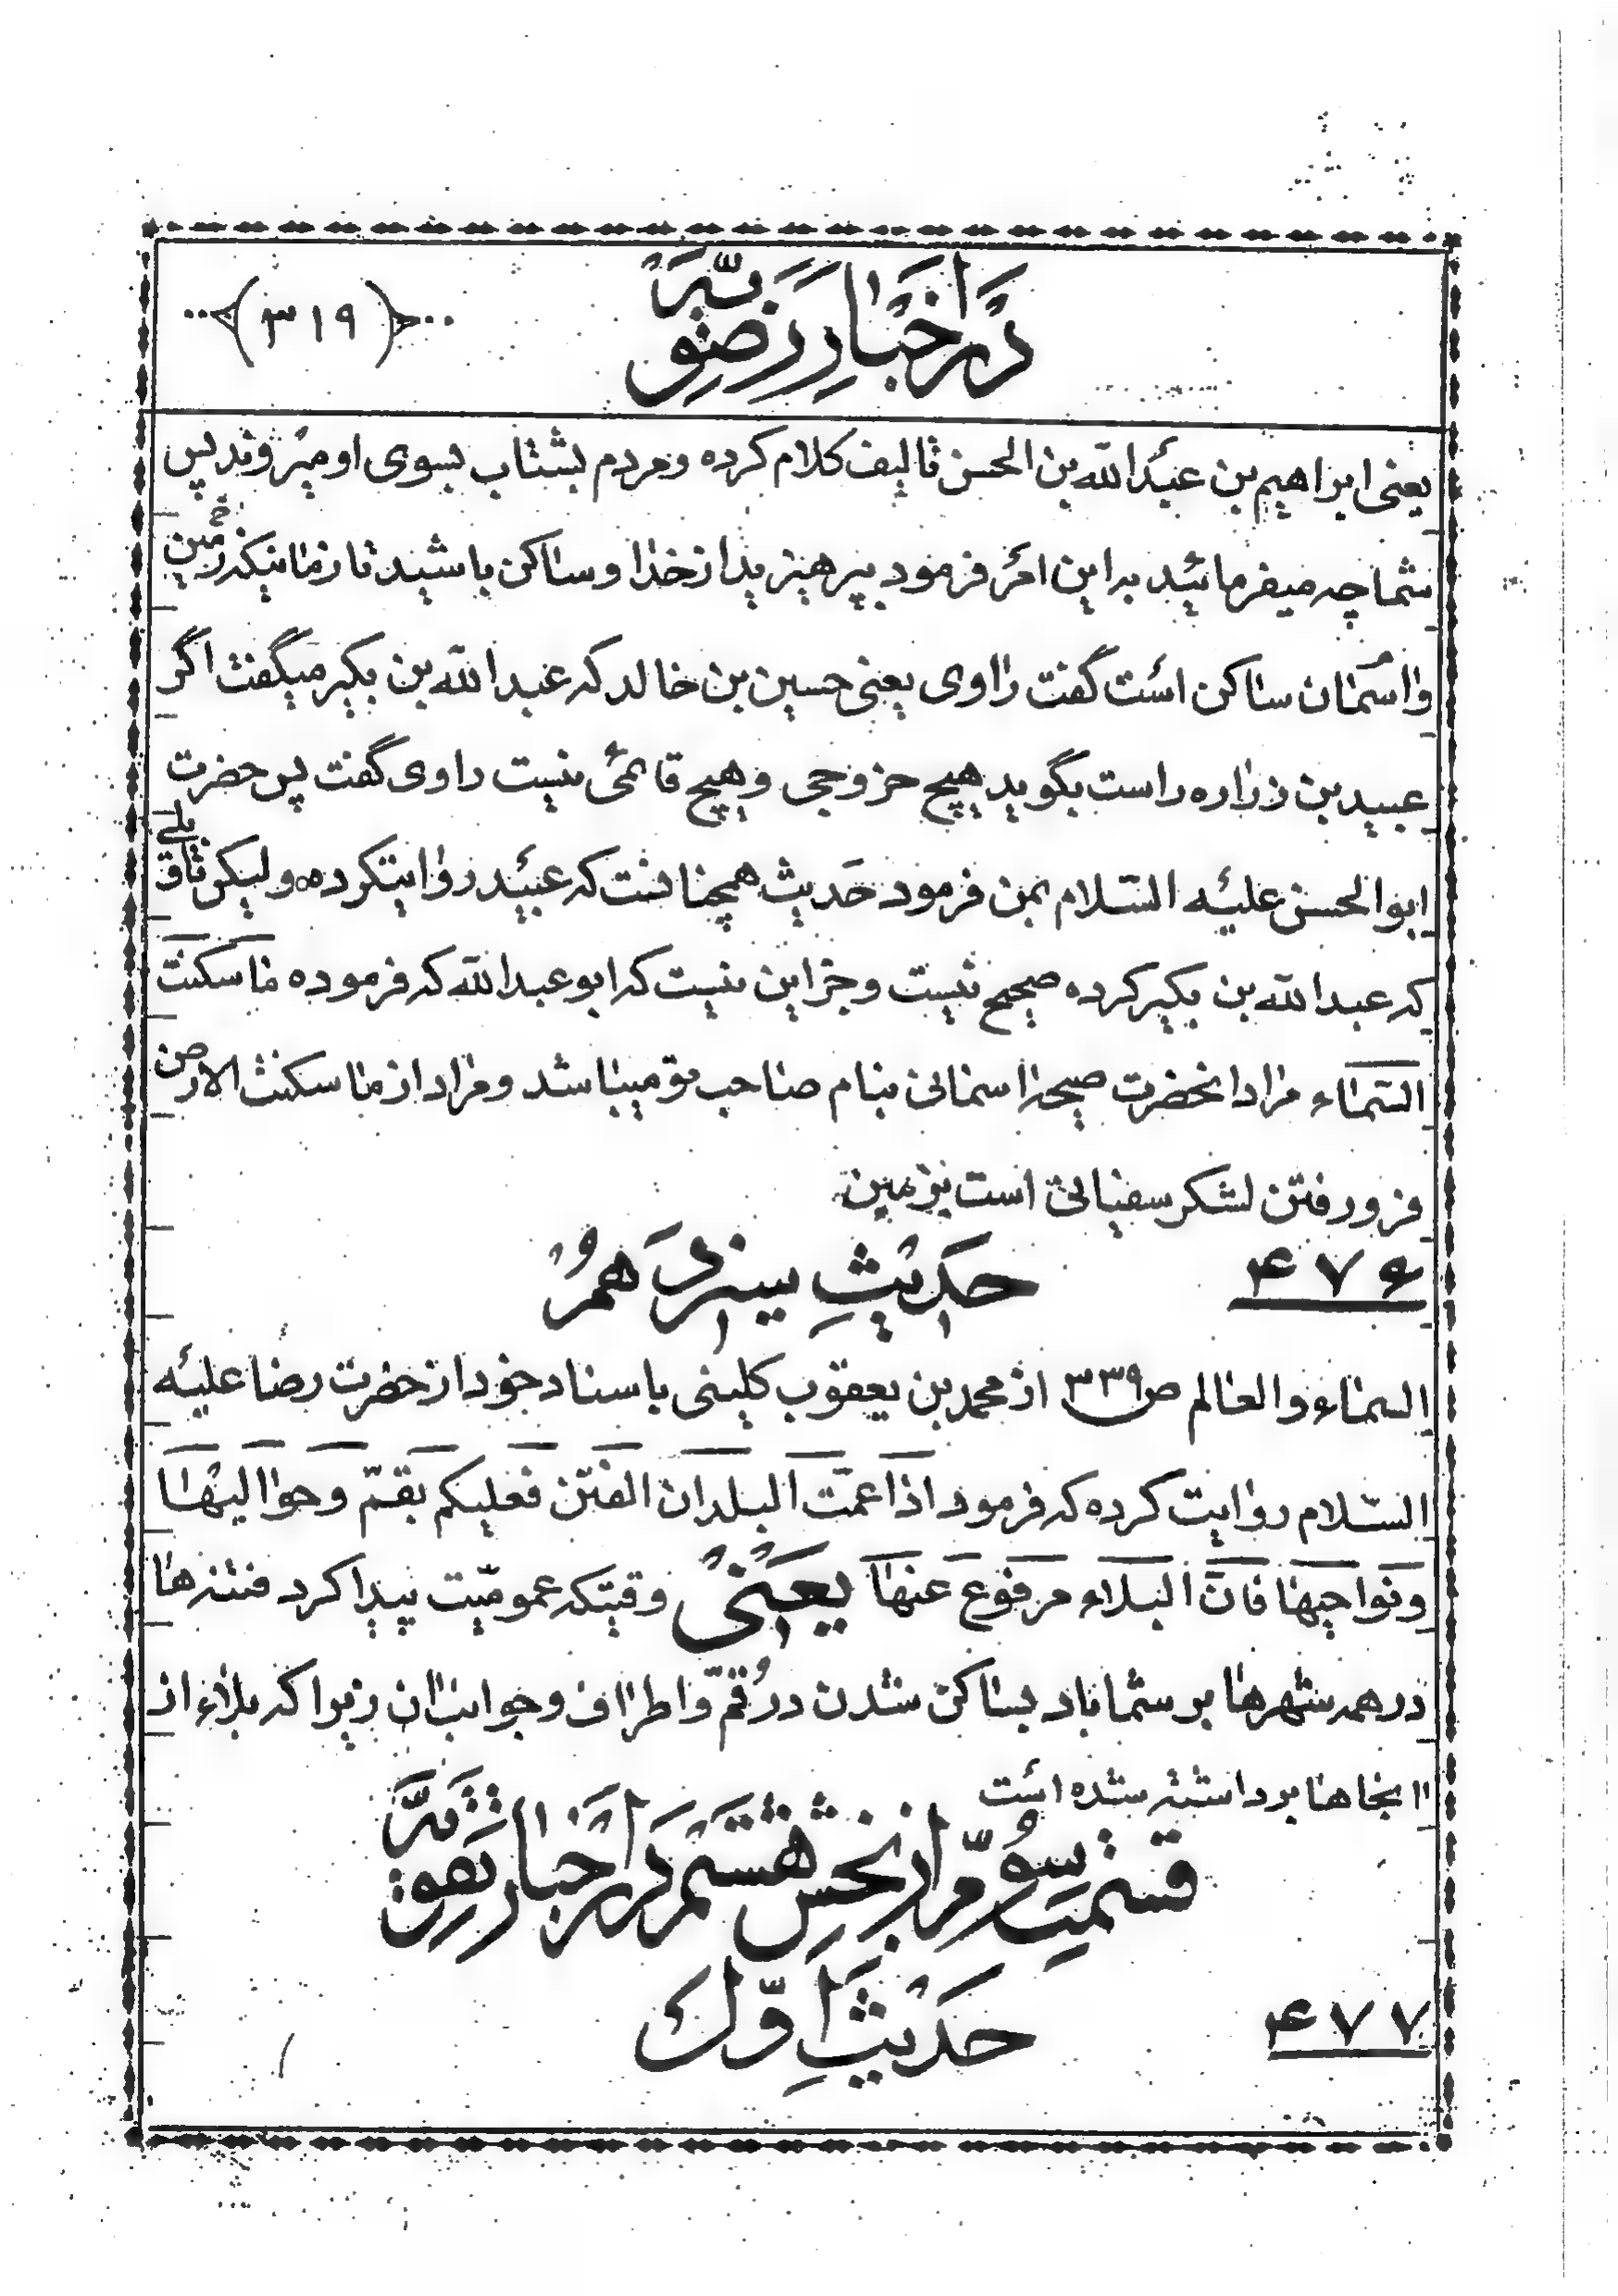 در اخبار رضویّه
(٣١٩)
یعنی ابراهیم بن عبدالله بن الحسن تالیف کلام کرده و مردم بشتاب بسوی او میروند پس
شما چه میفرمائید براین امر فرمود بپرهیزید از خدا و ساکن باشید تا زمانیکه زمین
و اسمان ساکن است گفت راوی یعنی حسین بن خالد که عبدالله بن بکیر میگفت اگر
عبید بن زراره راست بگوید هیچ خروجی و هیچ قائمی نیست راوی گفت پس حضرت
ابوالحسن علیه السّلام بمن فرمود حدیث همچنانست که عبید روایتکرده ولیکن تاویلی
که عبدالله بن بکیر کرده صحیح نیست و جز این نیست که ابو عبدالله که فرموده ما سکنت
السّماء مراد انحضرت صیحه اسمانی بنام صاحب تو میباشد و مراد از ما سکنت الارض
فرورفتن لشکر سفیانی است بزمین
۴۷۶ حدیث سیزدهم
السماء والعالم ص٣٣٩ از محمد بن یعقوب کلینی باسناد خود از حضرت رضا علیه
السّلام روایت کرده که فرمود اذا عمت البلدان الفتن فعلیکم بقمّ و حوالیها
و نواحیها فانّ البلاء مرفوع عنها یعنی وقتیکه عمومیّت پیدا کرد فتنه ها
در همه شهرها بر شما باد بساکن شدن در قمّ و اطراف و جوانب ان زیرا که بلاء از
انجاها برداشته شده است
قسمت سوّم از بخش هشتم در اخبار تقویّه
۴۷۷ حدیث اوّل